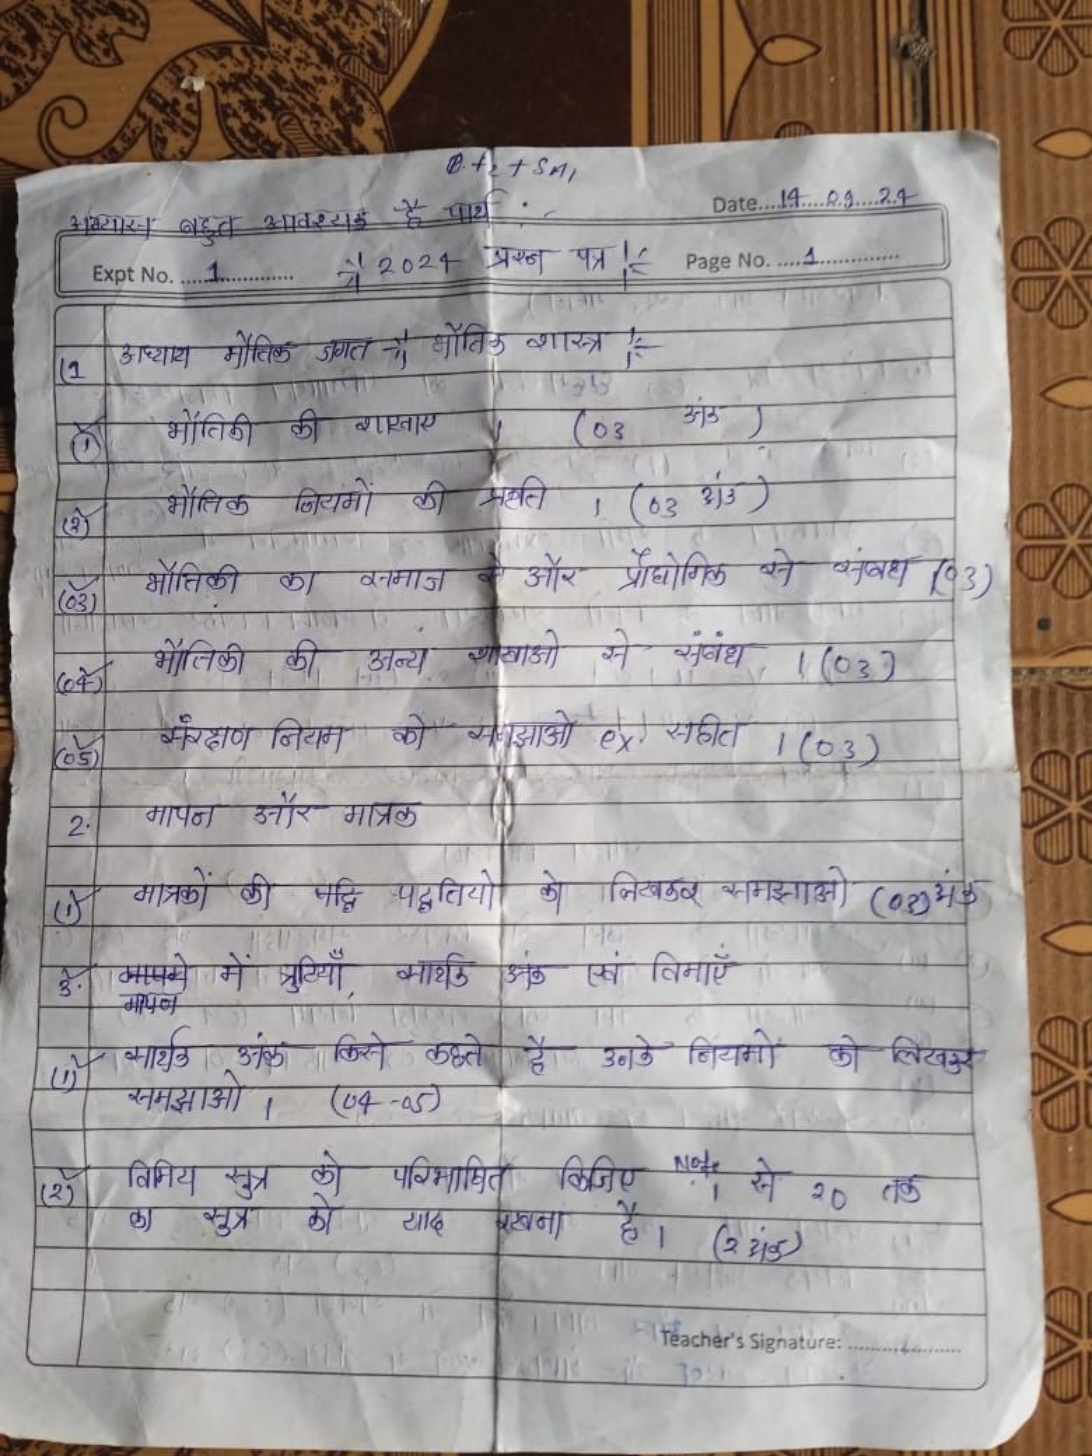 अभ्यास बहुत आवश्यक है पार्थ :-
Date....14....09....24
Expt No. ....1............. 2024 प्रश्न पत्र Page No. .....1..............
(1 अध्याय भौतिक जगत भौतिक शास्त्र
(1) भौतिकी की शाखाए । (03 अंक )
(2) भौतिक नियमों की प्रकृति । (03 अंक)
(03) भौतिकी का समाज से और प्रौद्योगिक से संबंध (03)
(04) भौतिकी की अन्य शाखाओ से संबंध । (03)
(05) संरक्षण नियम को समझाओ ex. सहीत । (03)
2. मापन और मात्रक
(1) मात्रकों की पद्धि पद्धतियो को लिखकर समझाओ (03) अंक
3. मापने में त्रुटियाँ, सार्थक अंक एवं विमाएँ
मापन
(1) सार्थक अंक किसे कहते है उनके नियमों को लिखकर
समझाओ । (04-05)
(2) विमिय सुत्र को परिभाषित किजिए Note 1 से 20 तक
का सुत्र को याद रखना है । (2 अंक)
Teacher's Signature: ......................